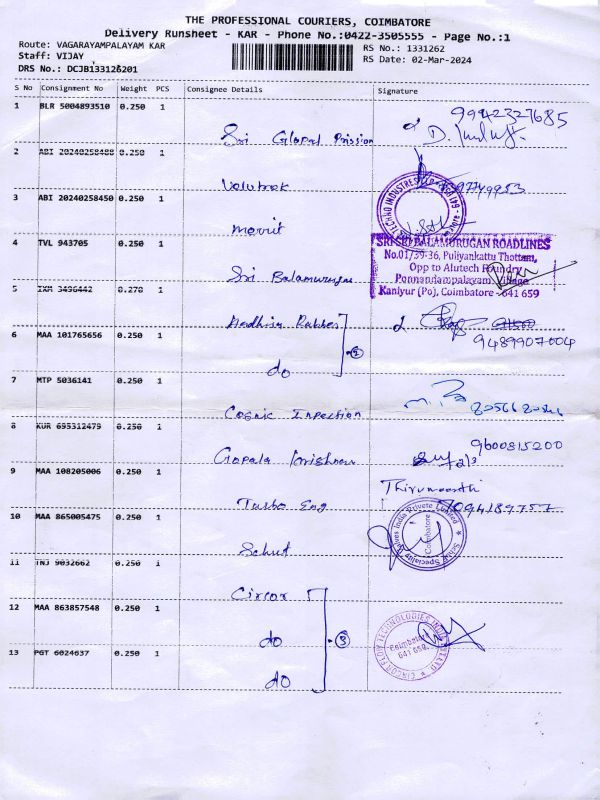 THE PROFESSIONAL COURIERS, COIMBATORE
Delivery Runsheet - KAR - Phone No.:0422-3505555 - Page No.:1
Route: VAGARAYAMPALAYAM KAR
RS No.: 1331262
Staff: VIJAY
RS Date: 02-Mar-2024
DRS No.: DCJB133126201
S No Consignment No Weight PCS Consignee Details Signature
1 BLR 5004893510 0.250 1
9942327685
Sri Glopal Prission
2 ABI 20240258488 0.250 1
Valubrok
3 ABI 20240258450 0.250 1
TECHNO INDUSTRIES
Movrit
4 TVL 943705 0.250 1
SRI SRI BALAMURUGAN ROADLINES
No.01/39-36, Puliyankattu Thottam,
Opp to Alutech Foundry
Ponnandampalayam Village
Kaniyur (Po), Coimbatore - 641 659
Sri Balamurugan
5 IXM 3436442 0.270 1
Aadhira Rubber
6 MAA 101765656 0.250 1
9489907004
do 2
7 MTP 5036141 0.250 1
Cosmic Inpection
8 KUR 695312479 0.250 1
9600815200
Gopala Krishnan
9 MAA 108205006 0.250 1
Thirumoorthi
Turbo Eng
10 MAA 865005475 0.250 1
Schuf Speciality Valves India Private Limited
Coimbatore
Schuf
11 TNJ 9032662 0.250 1
Circor
12 MAA 863857548 0.250 1
CIRCOR FLOW TECHNOLOGIES INDIA PVT LTD.
Coimbatore
641 659.
do 3
13 PGT 6024637 0.250 1
do